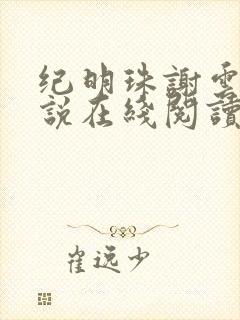 纪明珠謝雲
說在綫閱讀
崔逸少